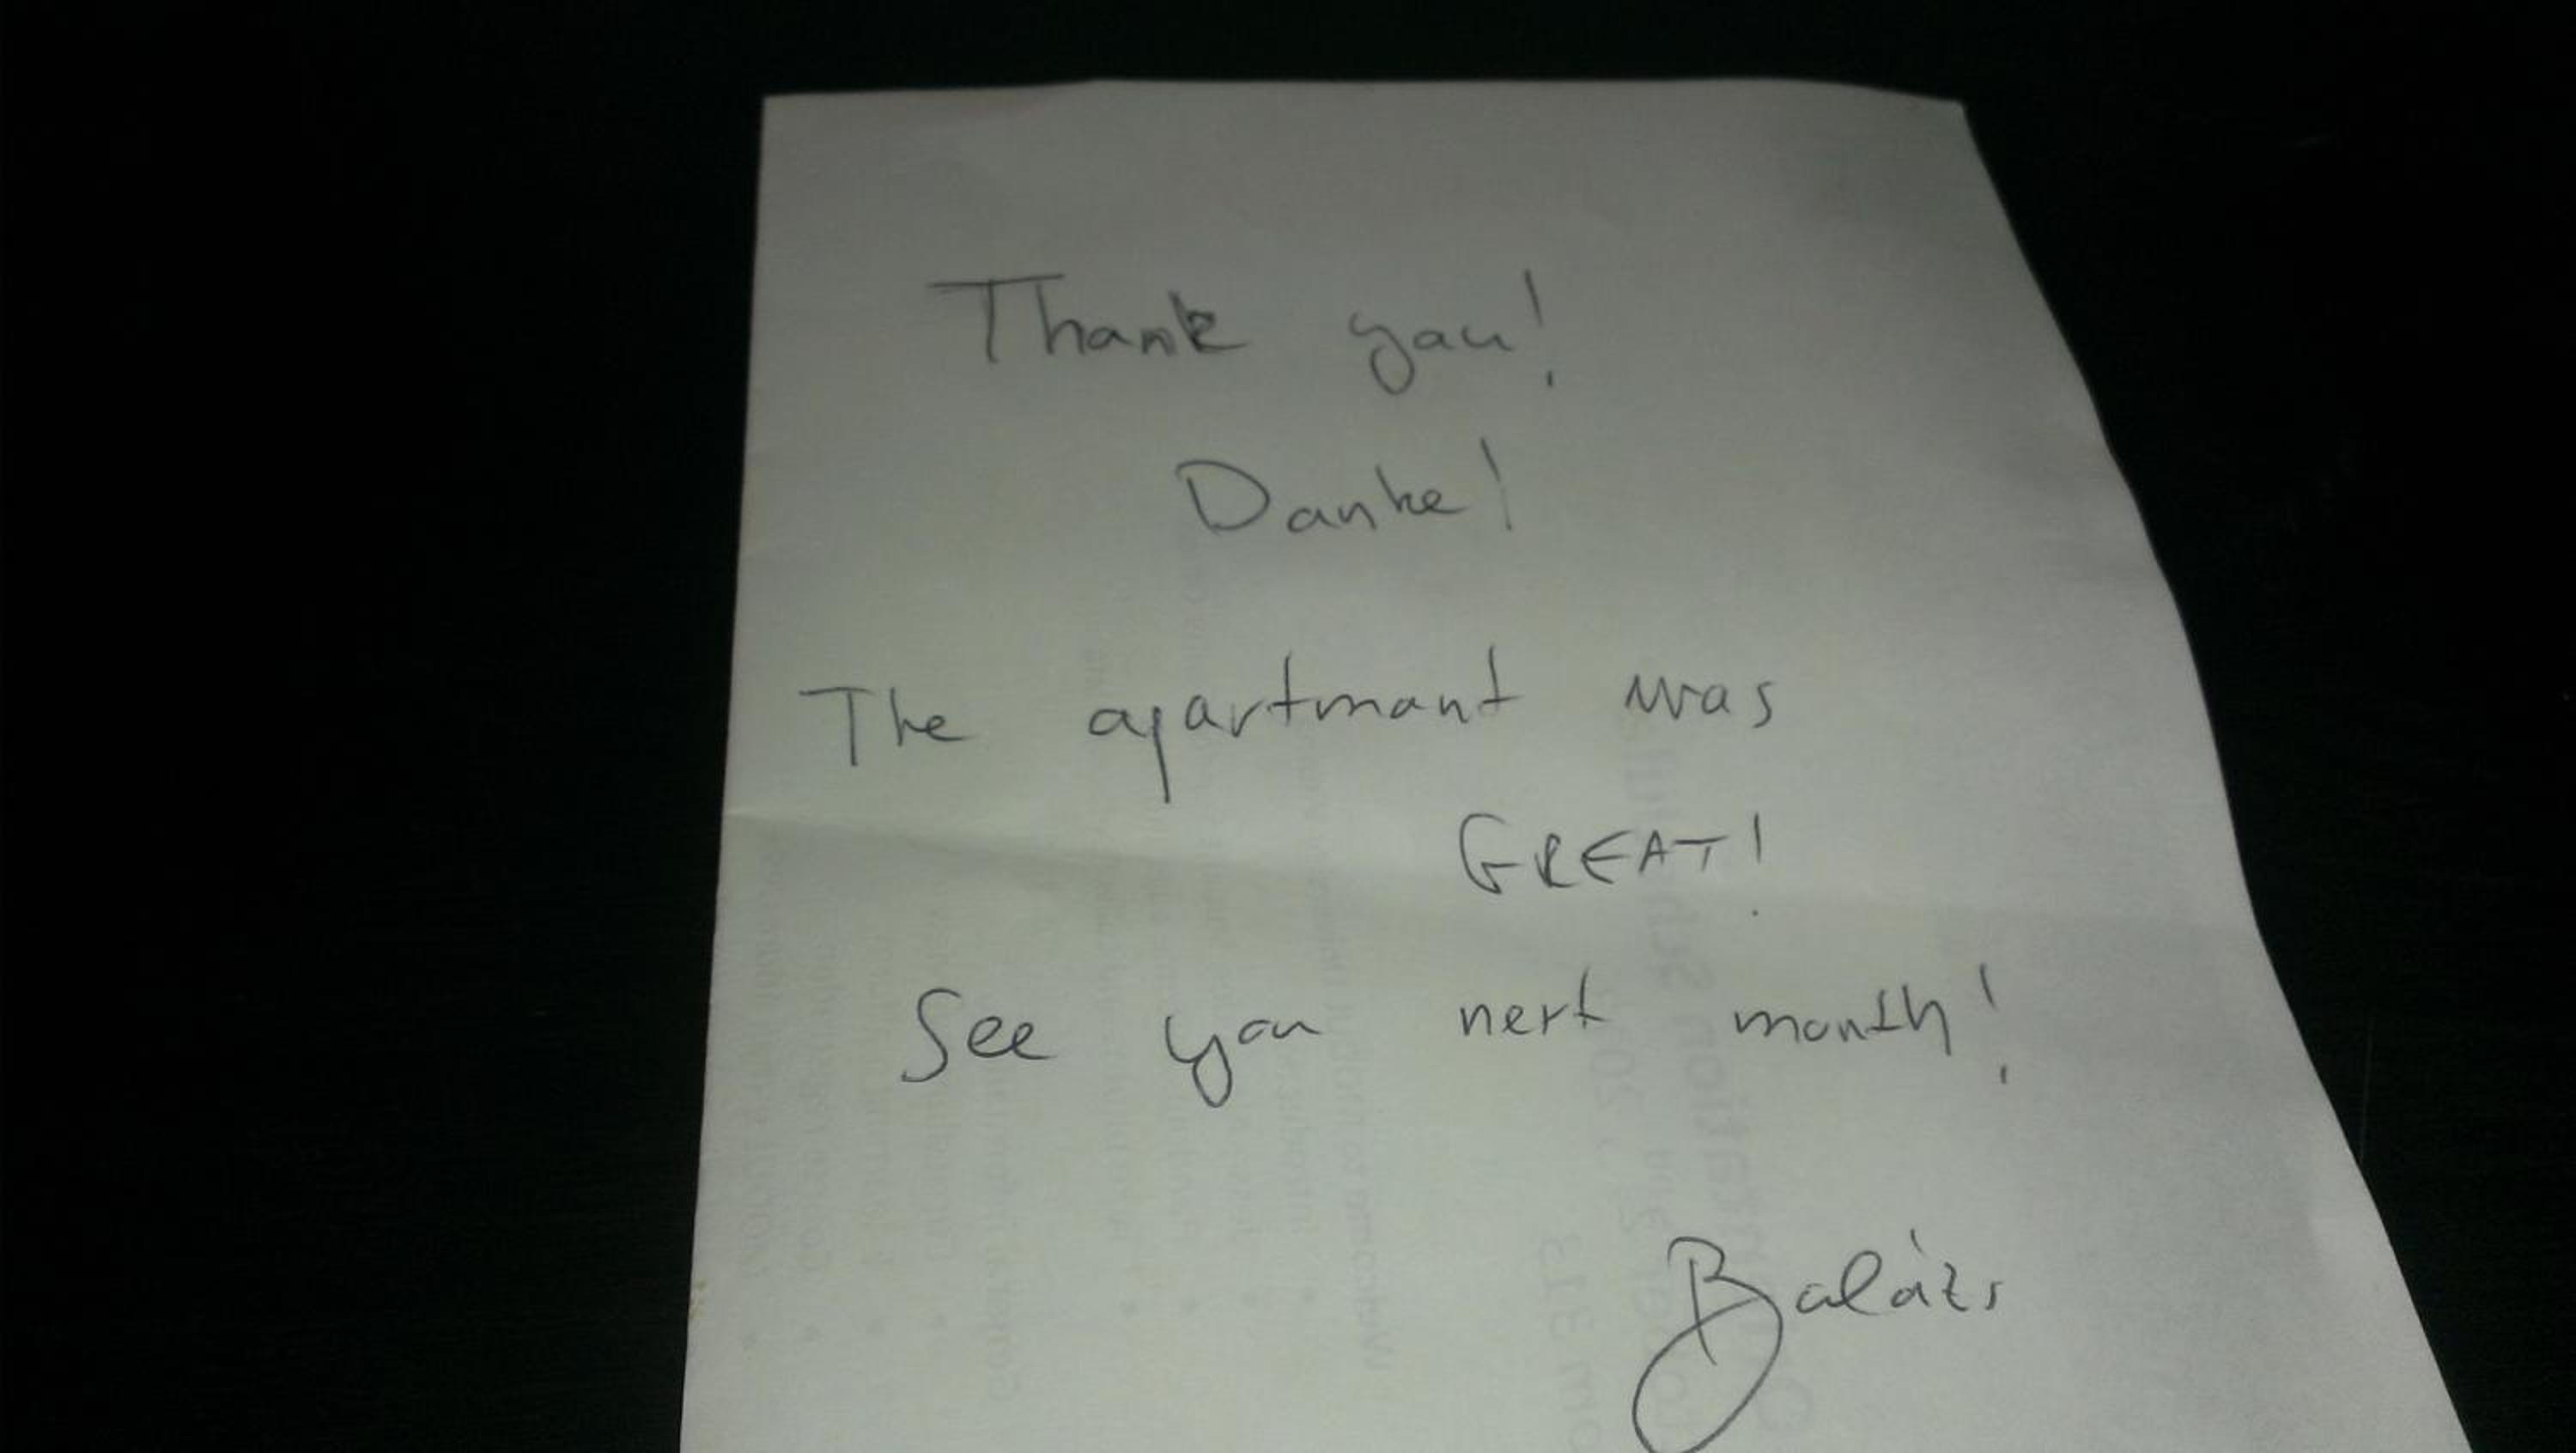 Thank you!
Danke!
The apartmant was
GREAT!
See you next month!
Balázs